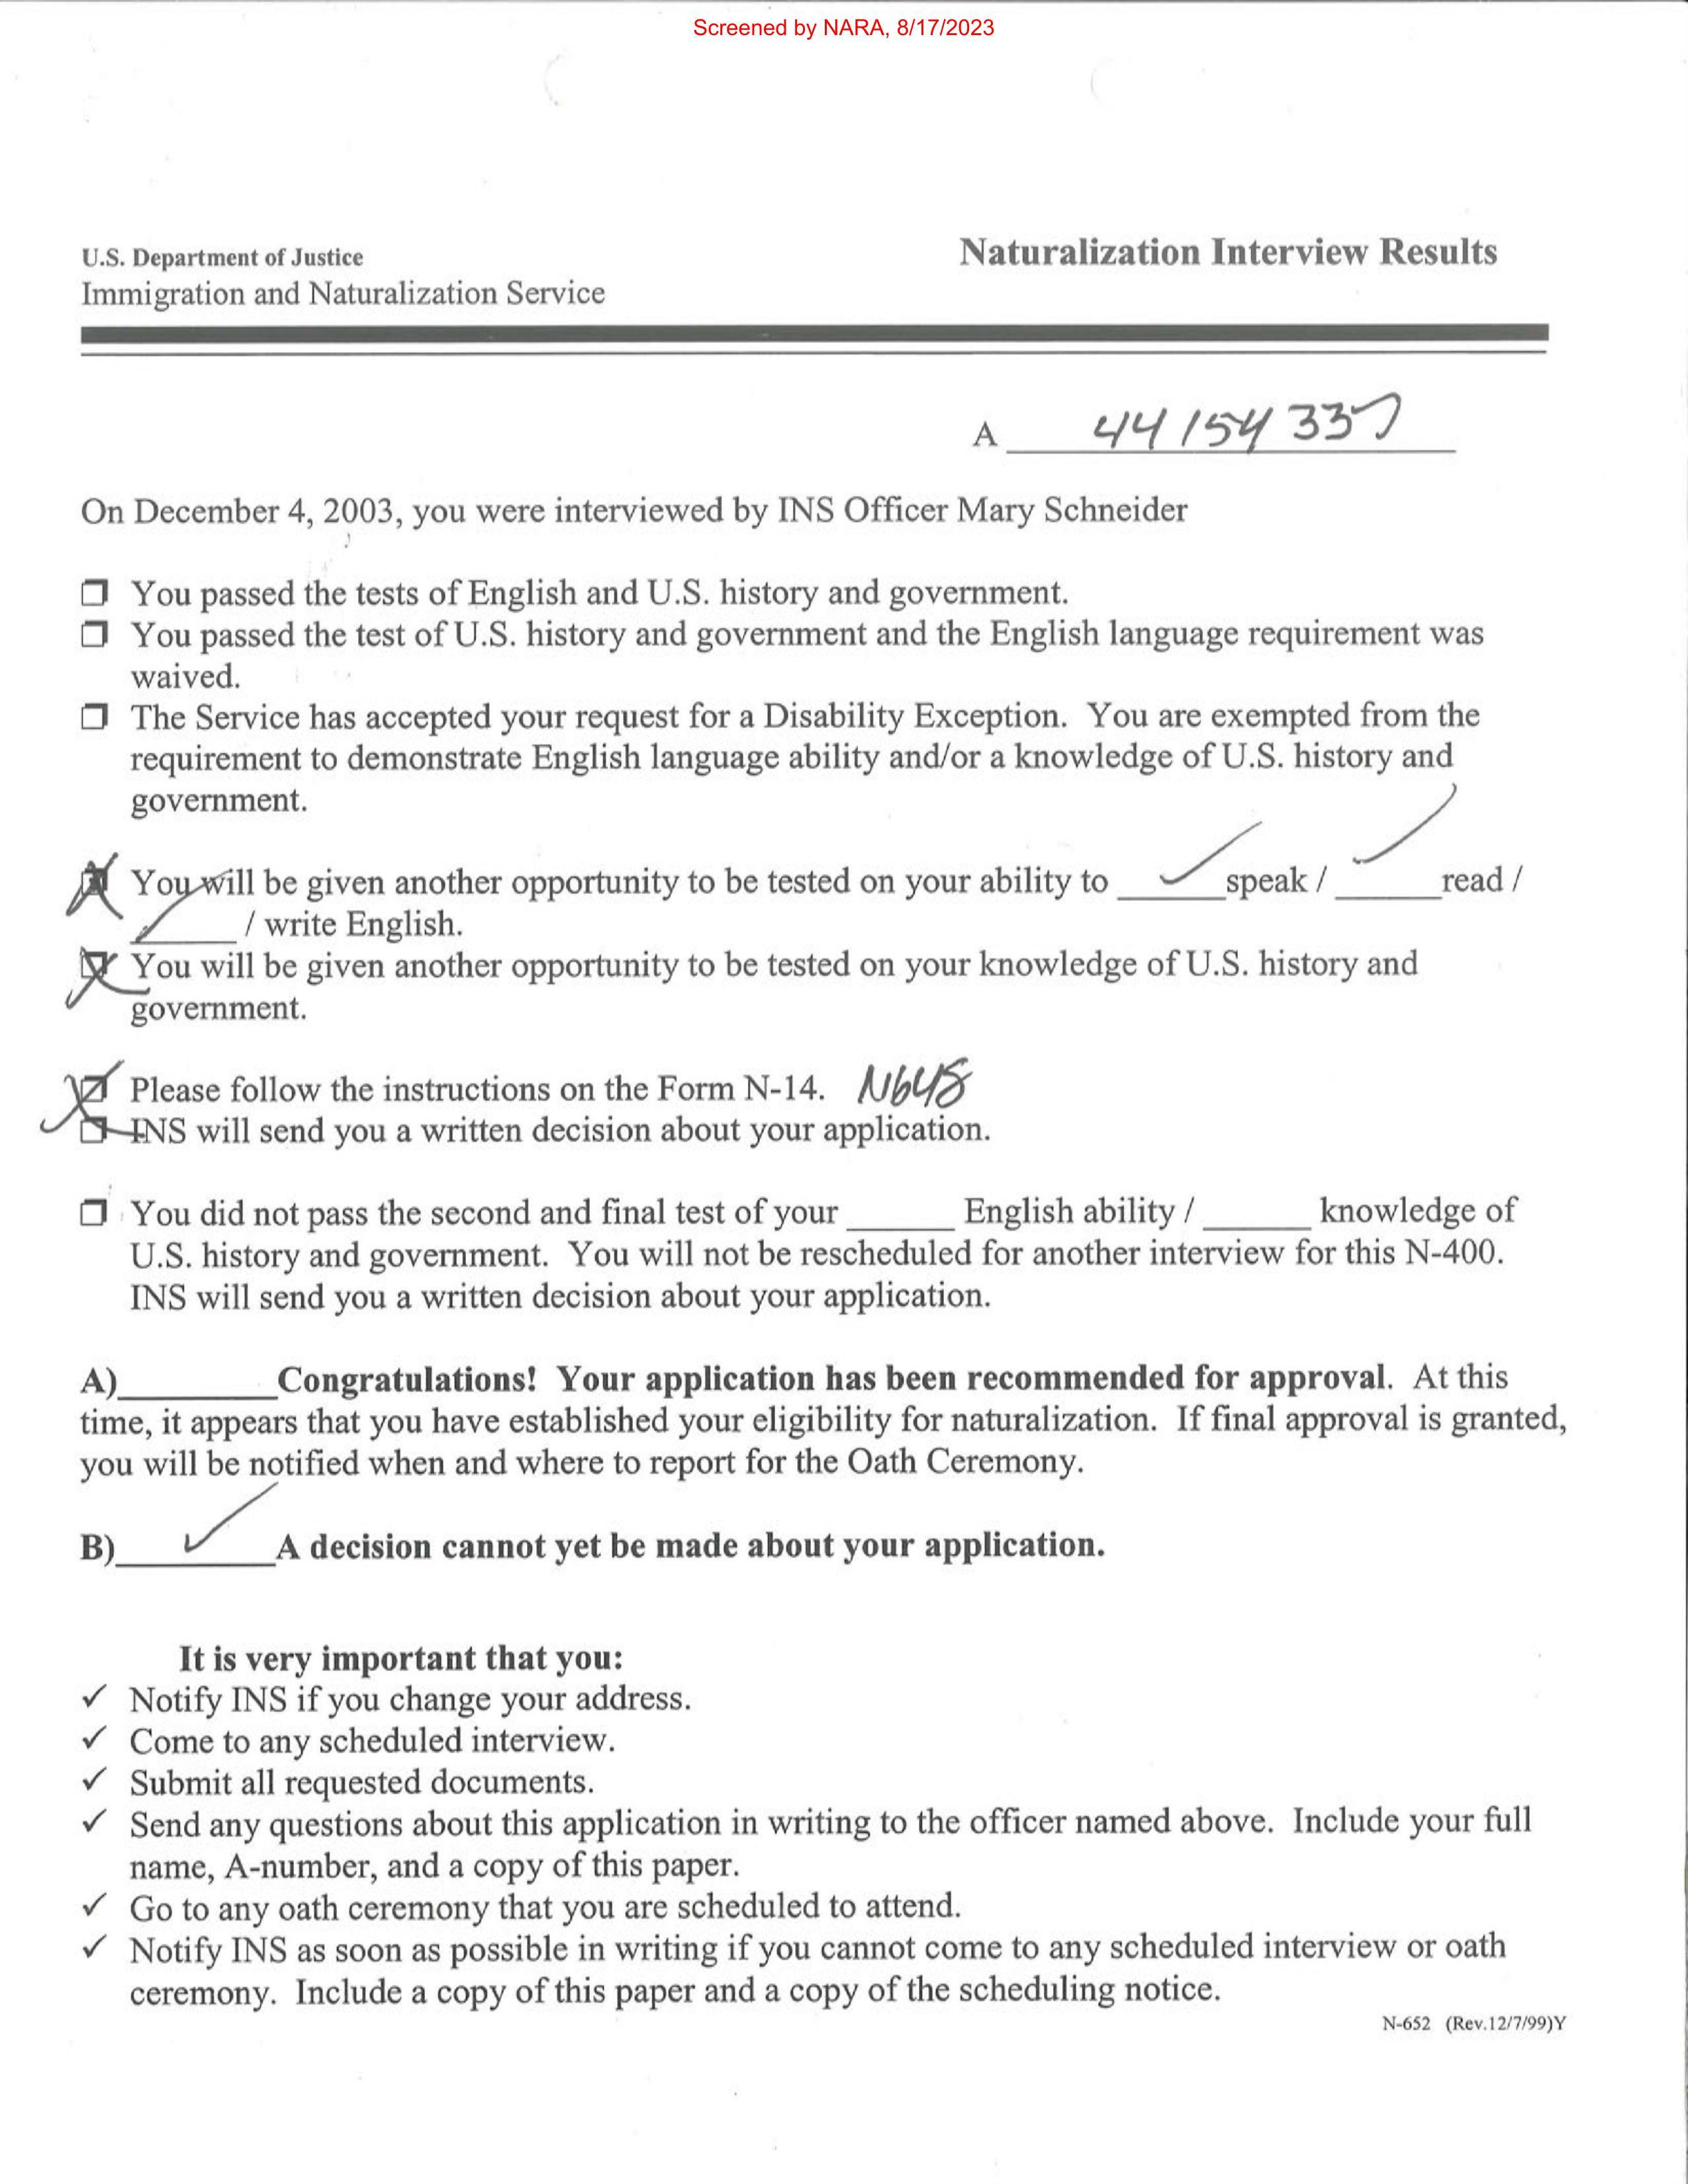 Screened by NARA, 8/17/2023
U.S. Department of Justice
Naturalization Interview Results
Immigration and Naturalization Service
A 44 154 337
On December 4, 2003, you were interviewed by INS Officer Mary Schneider
You passed the tests of English and U.S. history and government.
You passed the test of U.S. history and government and the English language requirement was
waived.
The Service has accepted your request for a Disability Exception. You are exempted from the
requirement to demonstrate English language ability and/or a knowledge of U.S. history and
government.
You will be given another opportunity to be tested on your ability to ______ speak / ______ read /
______ / write English.
You will be given another opportunity to be tested on your knowledge of U.S. history and
government.
Please follow the instructions on the Form N-14. N648
INS will send you a written decision about your application.
You did not pass the second and final test of your ______ English ability / ______ knowledge of
U.S. history and government. You will not be rescheduled for another interview for this N-400.
INS will send you a written decision about your application.
A)_________Congratulations! Your application has been recommended for approval. At this
time, it appears that you have established your eligibility for naturalization. If final approval is granted,
you will be notified when and where to report for the Oath Ceremony.
B)____✓____A decision cannot yet be made about your application.
It is very important that you:
✓ Notify INS if you change your address.
✓ Come to any scheduled interview.
✓ Submit all requested documents.
✓ Send any questions about this application in writing to the officer named above. Include your full
name, A-number, and a copy of this paper.
✓ Go to any oath ceremony that you are scheduled to attend.
✓ Notify INS as soon as possible in writing if you cannot come to any scheduled interview or oath
ceremony. Include a copy of this paper and a copy of the scheduling notice.
N-652 (Rev.12/7/99)Y